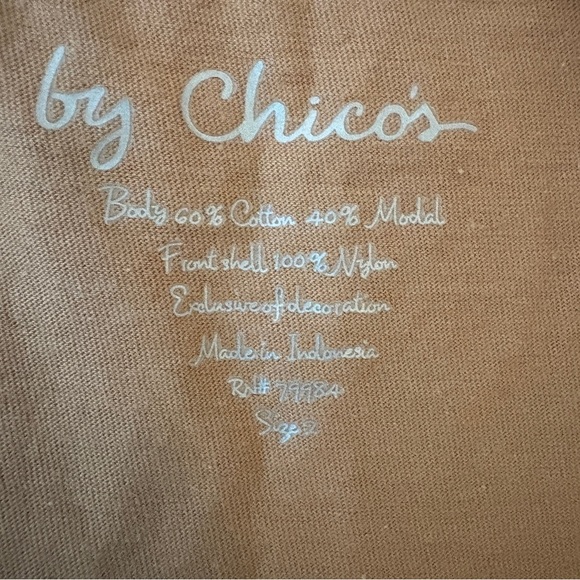 by Chico's
Body 60% Cotton 40% Modal
Front shell 100% Nylon
Exclusive of decoration
Made in Indonesia
RN# 79984
Size 2